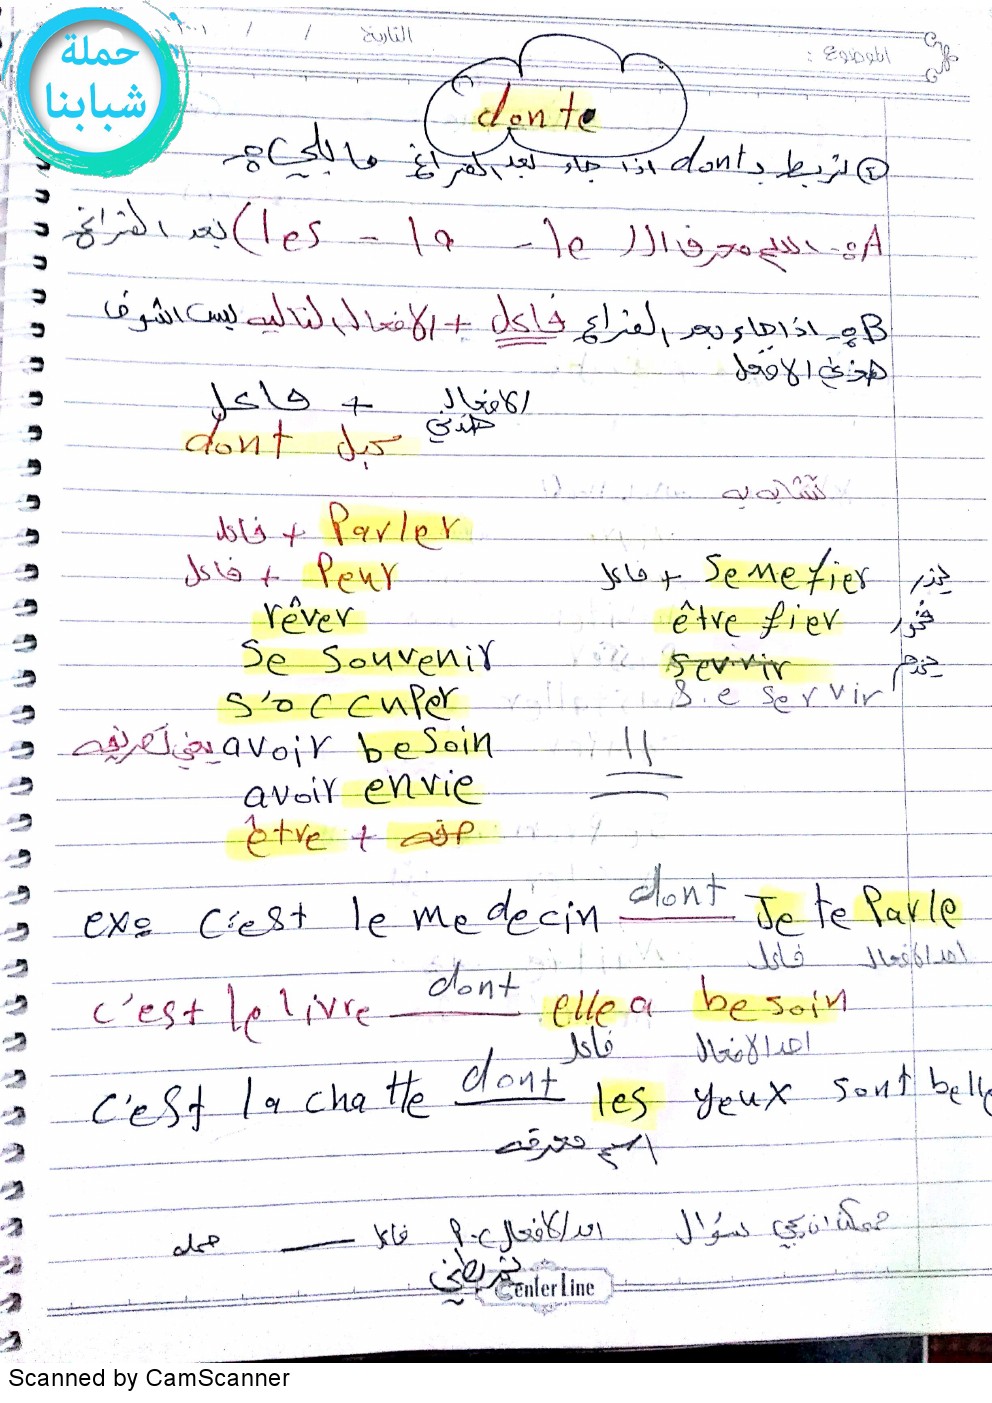 حملة شبابنا
الموضوع : التاريخ / /
donte
① نربط بـ dont اذا جاء بعد الفراغ ما يلي :-
A:- اسم معرف الـ (les - la - le) بعد الفراغ
B:- اذا جاء بعد الفراغ فاعل + الافعال التاليه بس اشوف
هذني الافعل
الافعال هذني + فاعل
dont
تشابه به
Parler + فاعل
Peur + فاعل
يحذر Se mefier + فاعل
rêver
فخور être fier
se souvenir
يخدم servir
s'occuper
S.e servir
avoir besoin
avoir envie
être + صفه
ex: C'est le medecin dont Je te Parle
فاعل احد الافعال
c'est le livre dont elle a besoin
فاعل احد الافعال
c'est la chatte dont les yeux sont belle
اسم معرفه
ممكن ان يجي سؤال
فاعل جمله
CenterLine
Scanned by CamScanner